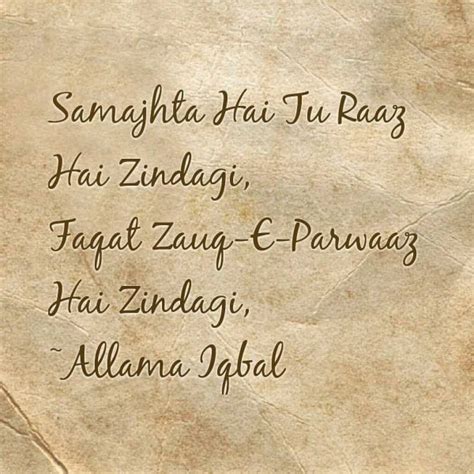 Samajhta Hai Tu Raaz
Hai Zindagi,
Faqat Zauq-E-Parwaaz
Hai Zindagi,
~Allama Iqbal